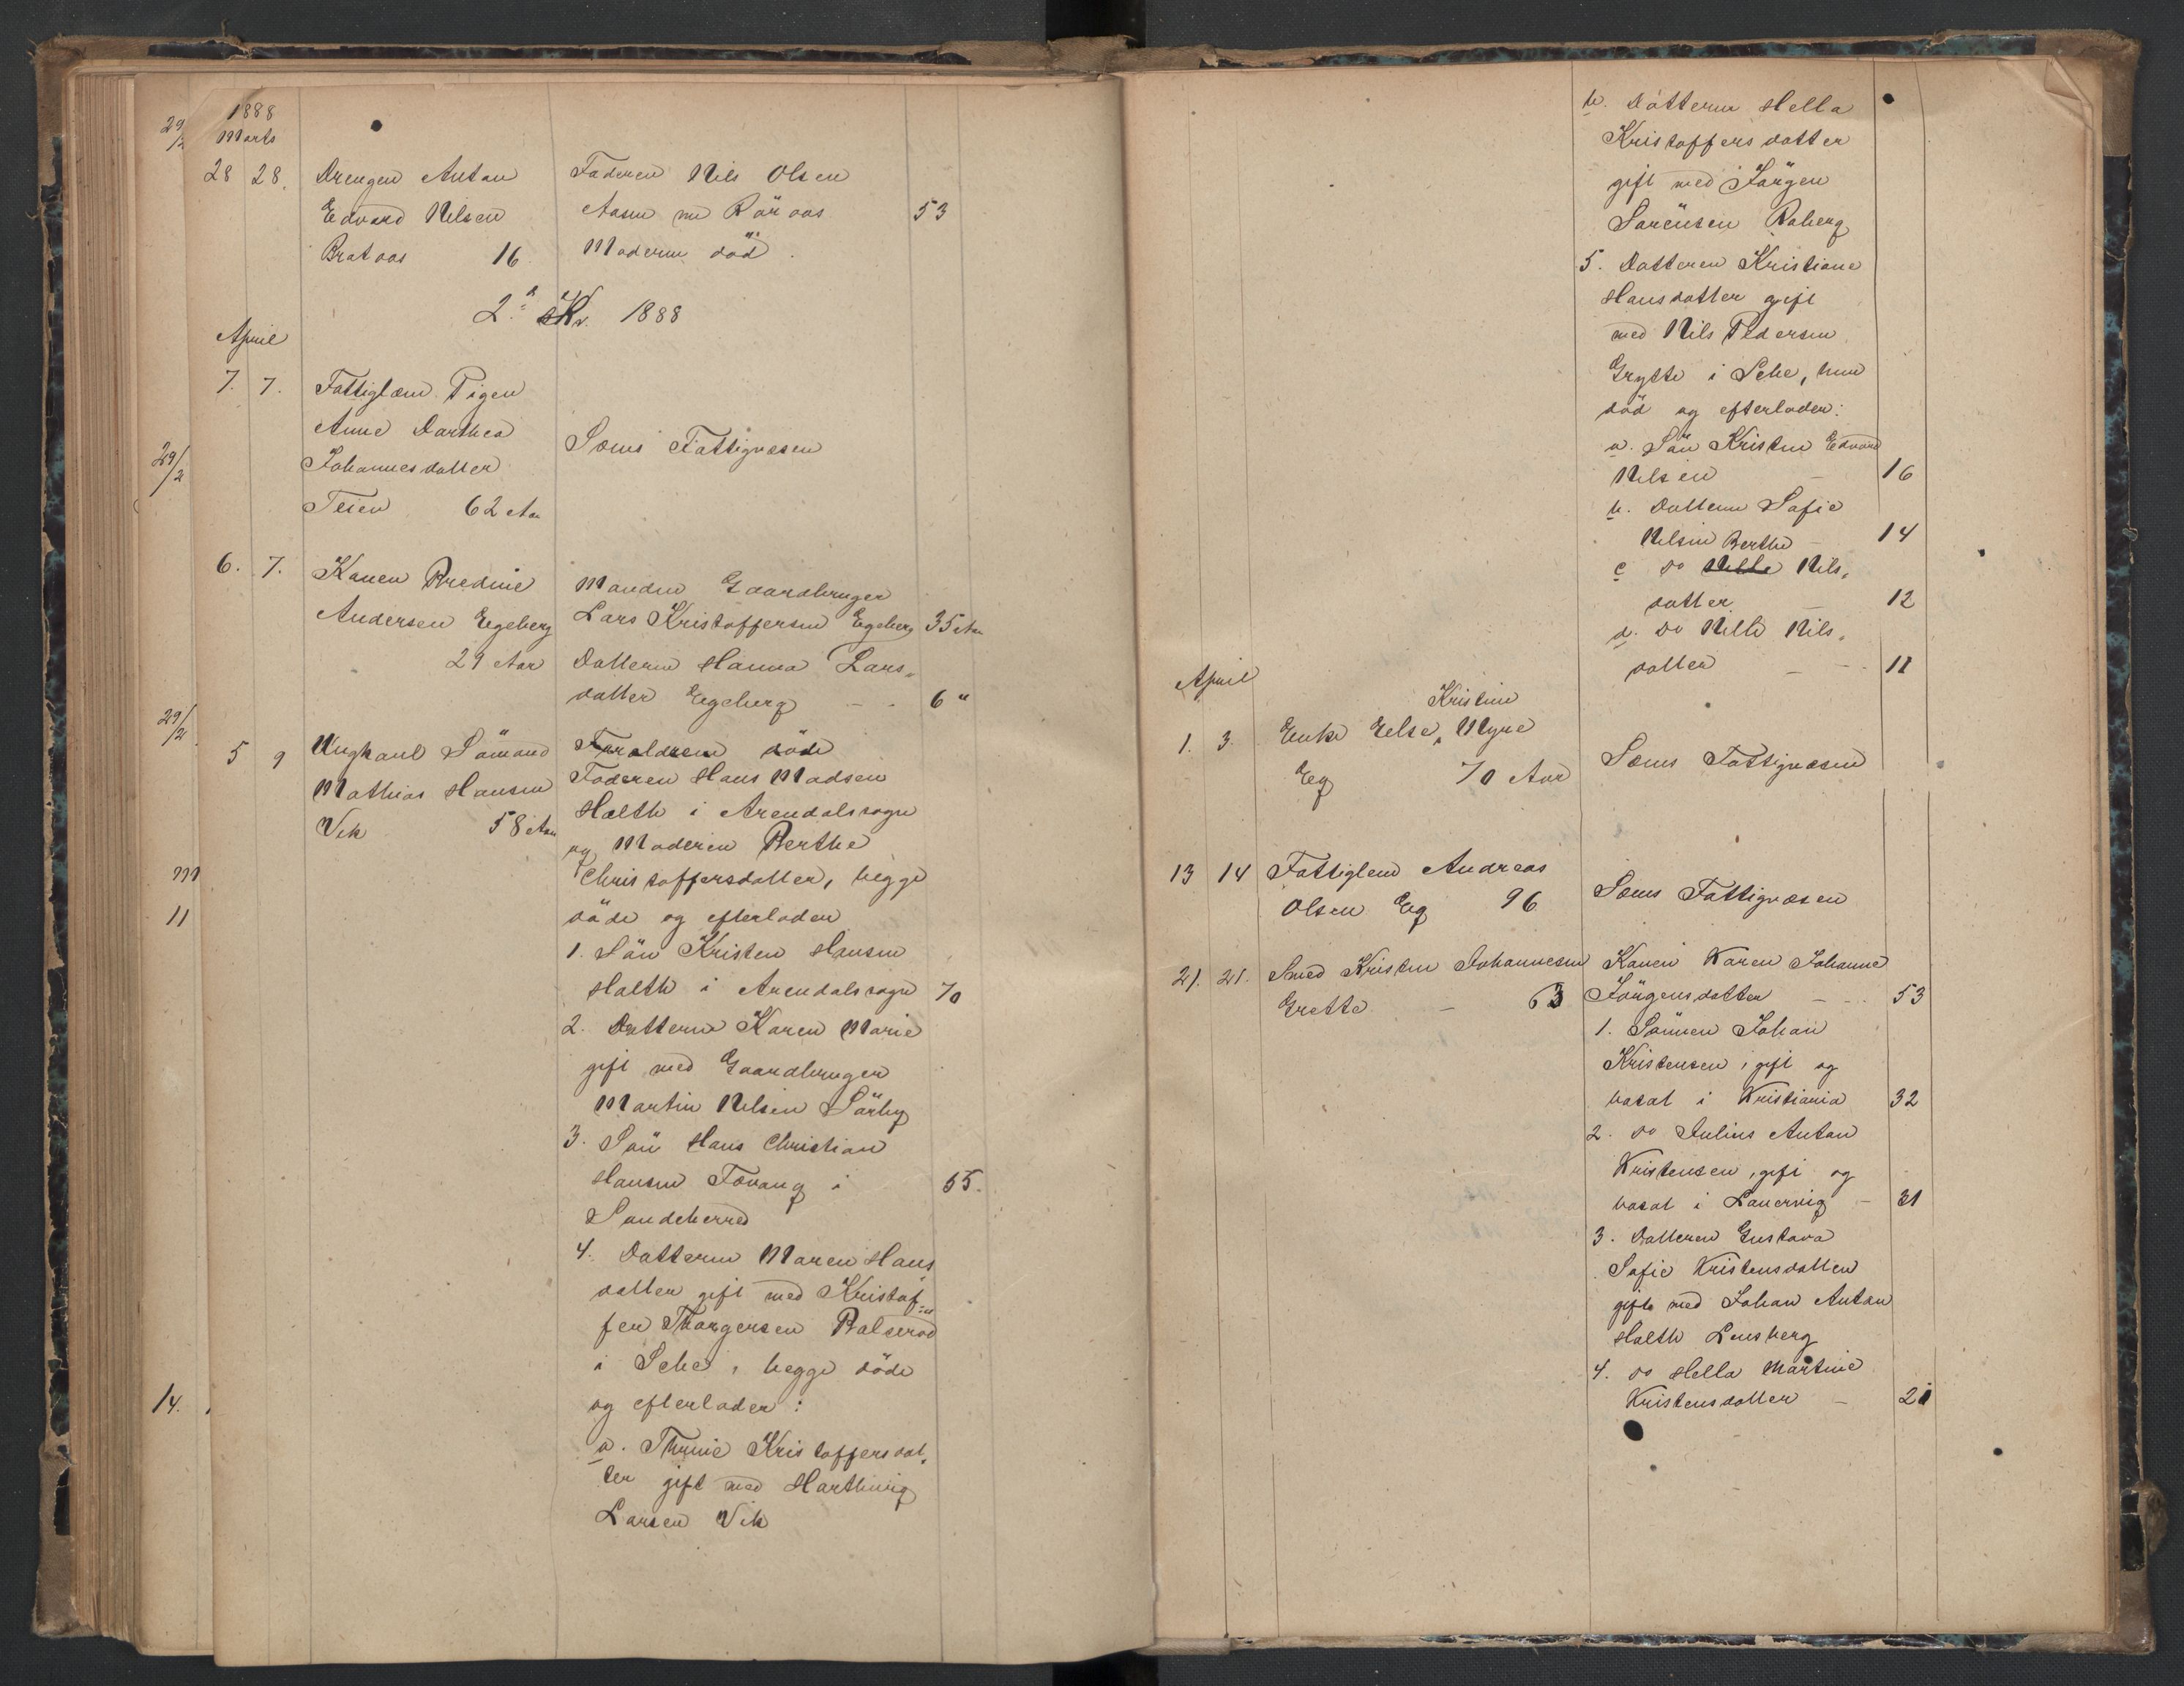 1888
Marts
28 28. Drengen Anton Faderen Nils Olsen
Edvard Nilsen Aasen Röraas 53
Brataas 16 Moderen död.
2. Kv. 1888
April
7. 7. Fattiglem Pigen
Anne Darthea
Johannesdatter Sems Fattigvæsen
Teien 62 Aar
6. 7. Konen Bredine Manden Gaardbruger
Andersen Egeberg Lars Kristoffersen Egeberg 35 Aar
29 Aar Datteren Hanna Lars-
datter Egeberg - - 6 "
5 9 Ungkarl Sömand Forældrene döde
Mathias Hansen Faderen Hans Madsen
Vik 58 Aar Holth i Arendalssogn
og Moderen Berthe
Christoffersdatter, begge
döde og efterlader
1. Sön Kristen Hansen
Holth i Arendalssogn 70
2. Datteren Karen Marie
gift med Gaardbruger
Martin Nilsen Sörby
3. Sön Hans Christian
Hansen Fevang i 55.
Sandeherred
4. Datteren Maren Hans
datter gift med Kristof-
fer Thorgersen Bolserød
i Sche, begge döde
og efterlader:
a. Thrine Kristoffersdat-
ter gift med Harthvig
Larsen Vik
29/2
29/2
29/2
M
11
14.
b. Datteren Hella
Kristoffersdatter
gift med Jörgen
Sörensen Roberg
5. Datteren Kristiane
Hansdatter gift
med Nils Pedersen
Grytte i Sche, hun
död og efterlader:
a. Sön Kristen Edvard
Nilsen - 16
b. Datteren Sofie
Nilsen Berthe - 14
c Do Nille Nils-
datter - 12
d. Do Nille Nils-
datter - - 11
April
Kristine
1. 3. Enke Else Myre
Eg 70 Aar Sems Fattigvæsen
13 14 Fattiglem Andreas
Olsen Eg 96 Sems Fattigvæsen
21. 21. Smed Kristen Johannesen Konen Karen Johanne
Gretta - 63 Jörgensdatter - - 53
1. Sönnen Johan
Kristensen, gift og
bosat i Kristiania 32
2. Do Julius Anton
Kristensen, gift og
bosat i Laurvig - 31
3. Datteren Gustava
Sofie Kristensdatter
gift med Johan Anton
Holth Lensberg
4. Do Hella Martine
Kristensdatter - 21